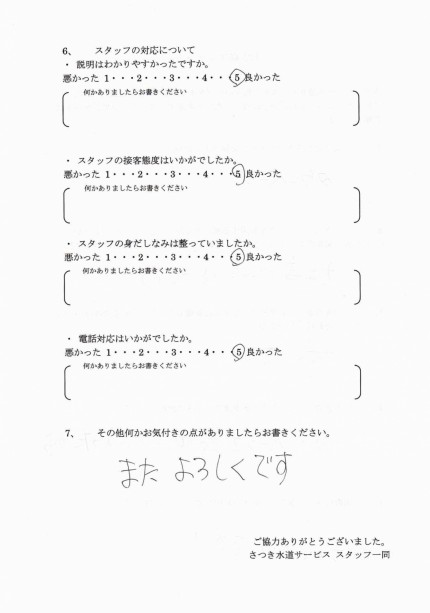 6、 スタッフの対応について
・ 説明はわかりやすかったですか。
悪かった 1・・・2・・・3・・・4・・・5 良かった
何かありましたらお書きください
・ スタッフの接客態度はいかがでしたか。
悪かった 1・・・2・・・3・・・4・・・5 良かった
何かありましたらお書きください
・ スタッフの身だしなみは整っていましたか。
悪かった 1・・・2・・・3・・・4・・・5 良かった
何かありましたらお書きください
・ 電話対応はいかがでしたか。
悪かった 1・・・2・・・3・・・4・・・5 良かった
何かありましたらお書きください
7、 その他何かお気付きの点がありましたらお書きください。
また よろしくです
ご協力ありがとうございました。
さつき水道サービス スタッフ一同